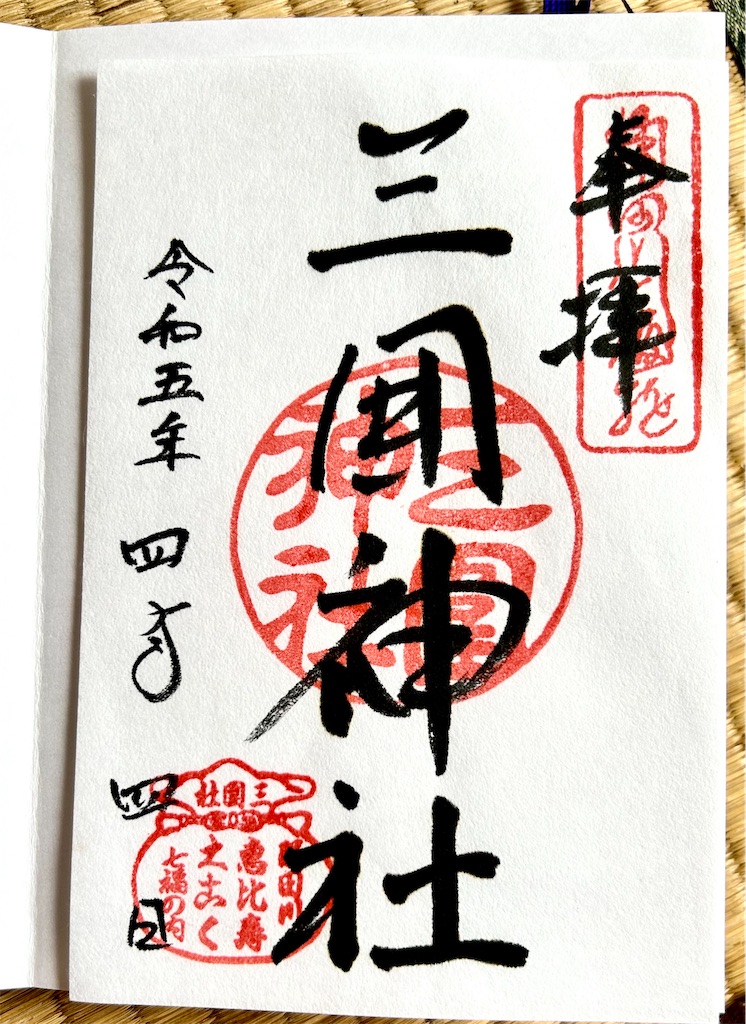 奉拝
三囲神社
三囲神社
令和五年 四月 四日
三囲社
隅田川
恵比寿
大こく
七福の内